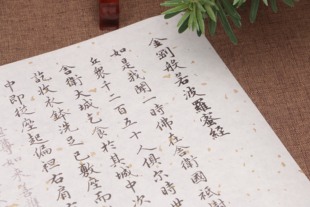 金剛般若波羅蜜經
如是我聞一時佛在舍衛國祇樹
丘眾千二百五十人俱尒時世
舍衛大城乞食於其城中次
訖收衣鉢洗足已敷座而
中即從座起偏袒右肩右